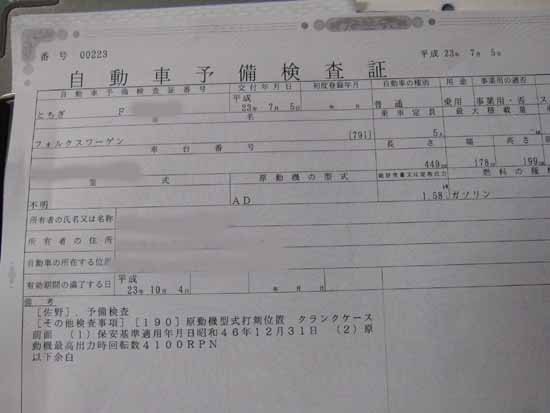 番号 00223
平成 23年 7月 5日
自動車予備検査証
自動車予備検査証番号 交付年月日 初度登録年月 自動車の種別 用途 事業用の適否
とちぎ
平成
23年 7月 5日 年 月 普通 乗用 事業用・否
車名 乗車定員 最大積載量
フォルクスワーゲン [791] 5人
車台番号 長さ 幅 高さ
449cm 178cm 199cm
型式 原動機の型式 総排気量又は定格出力 燃料の種
不明 AD 1.58 ガソリン
所有者の氏名又は名称
所有者の住所
自動車の所在する位置
有効期間の満了する日 平成
23年 10月 4日 年 月 日
備考
[佐野]．予備検査
[その他検査事項] [190] 原動機型式打刻位置 クランクケース
前面 (1) 保安基準適用年月日昭和46年12月31日 (2) 原
動機最高出力時回転数4100RPN
以下余白